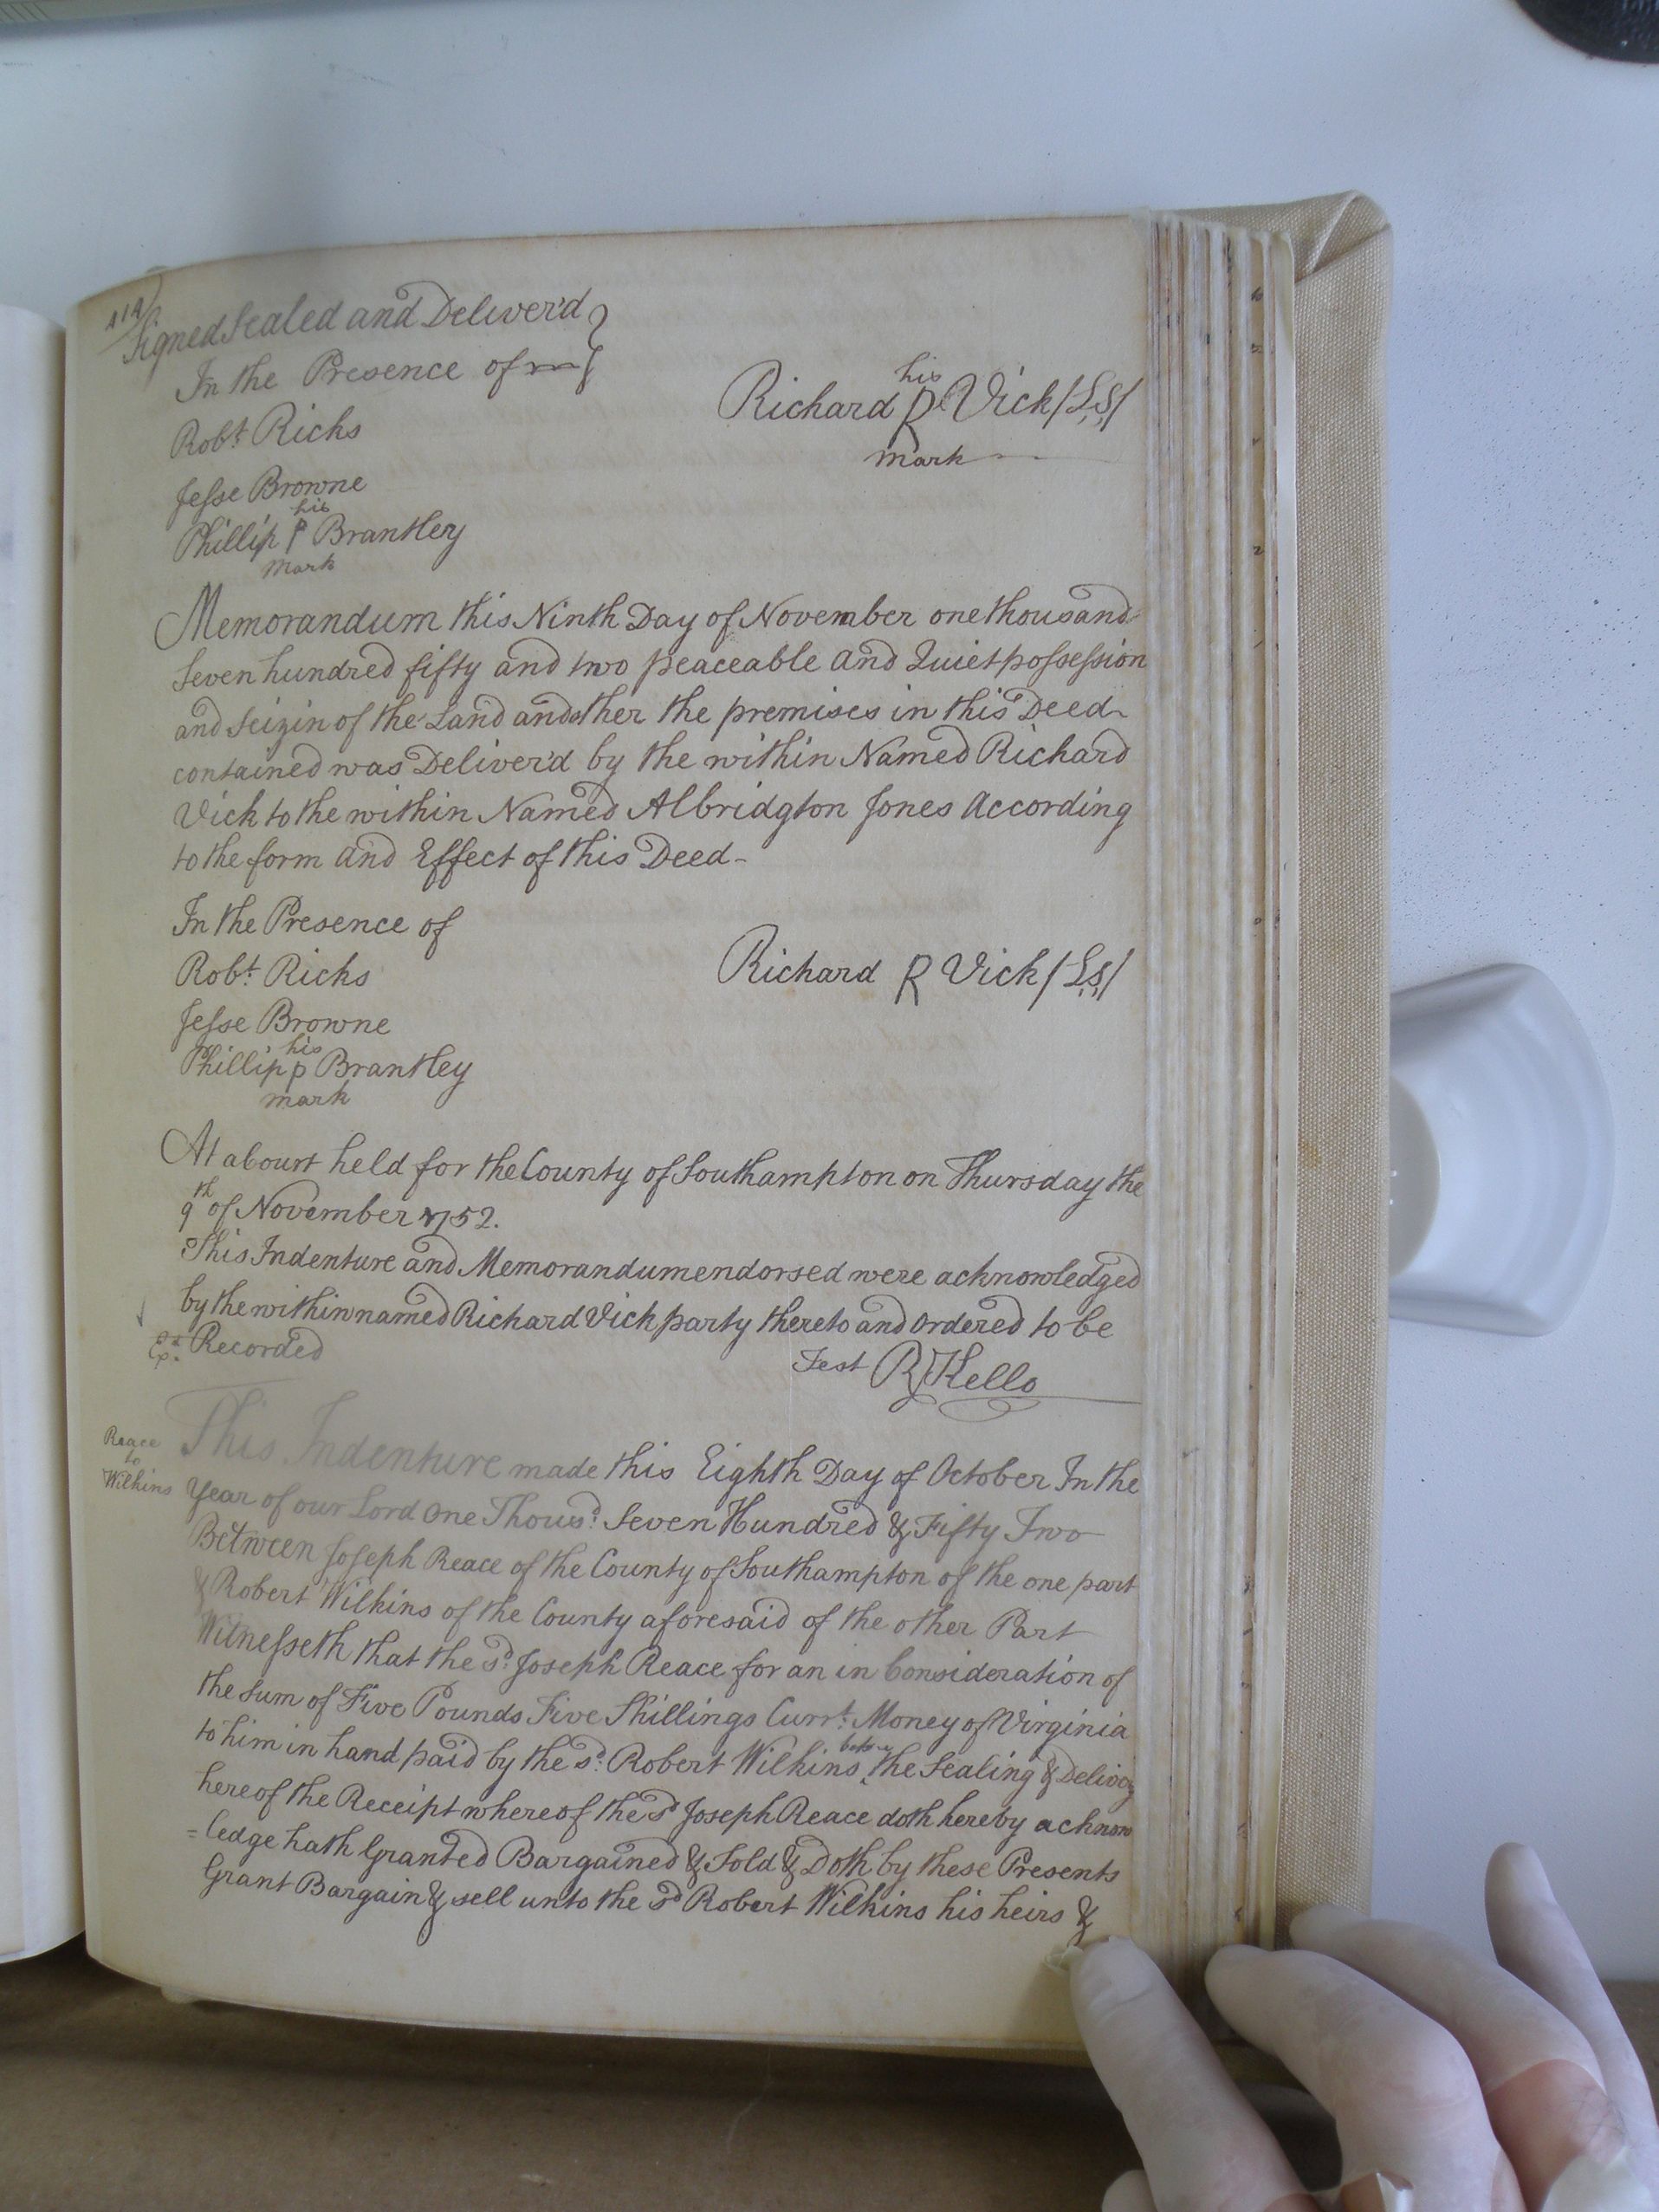 414
Signed Sealed and Deliver'd
In the Presence of
Robt. Ricks
Jesse Browne
his
Phillip P Brantley
mark
his
Richard R Vick /L,,S,,/
mark
Memorandum this Ninth Day of November one thousand
Seven hundred fifty and two peaceable and Quiet possession
and Seizin of the Land and other the premises in this Deed
contained was Deliver'd by the within Named Richard
Vick to the within Named Albridgton Jones According
to the form and Effect of this Deed-
In the Presence of
Robt. Ricks
Jesse Browne
his
Phillip p Brantley
mark
Richard R Vick /L,,S,,/
At a Court held for the County of Southampton on Thursday the
9th of November 1752.
This Indenture and Memorandum endorsed were acknowledged
by the within named Richard Vick party thereto and Ordered to be
Recorded
Test R Kello
Reace
to
Wilkins
This Indenture made this Eighth Day of October In the
Year of our Lord One Thousd. Seven Hundred & Fifty Two
Between Joseph Reace of the County of Southampton of the one part
& Robert Wilkins of the County aforesaid of the other Part
Witnesseth that the sd. Joseph Reace for an in Consideration of
the Sum of Five Pounds Five Shillings Currt. Money of Virginia
to him in hand paid by the sd. Robert Wilkins before the Sealing & Delivery
hereof the Receipt whereof the sd Joseph Reace doth hereby acknow
=ledge hath Granted Bargained & Sold & Doth by these Presents
Grant Bargain & sell unto the sd Robert Wilkins his heirs &